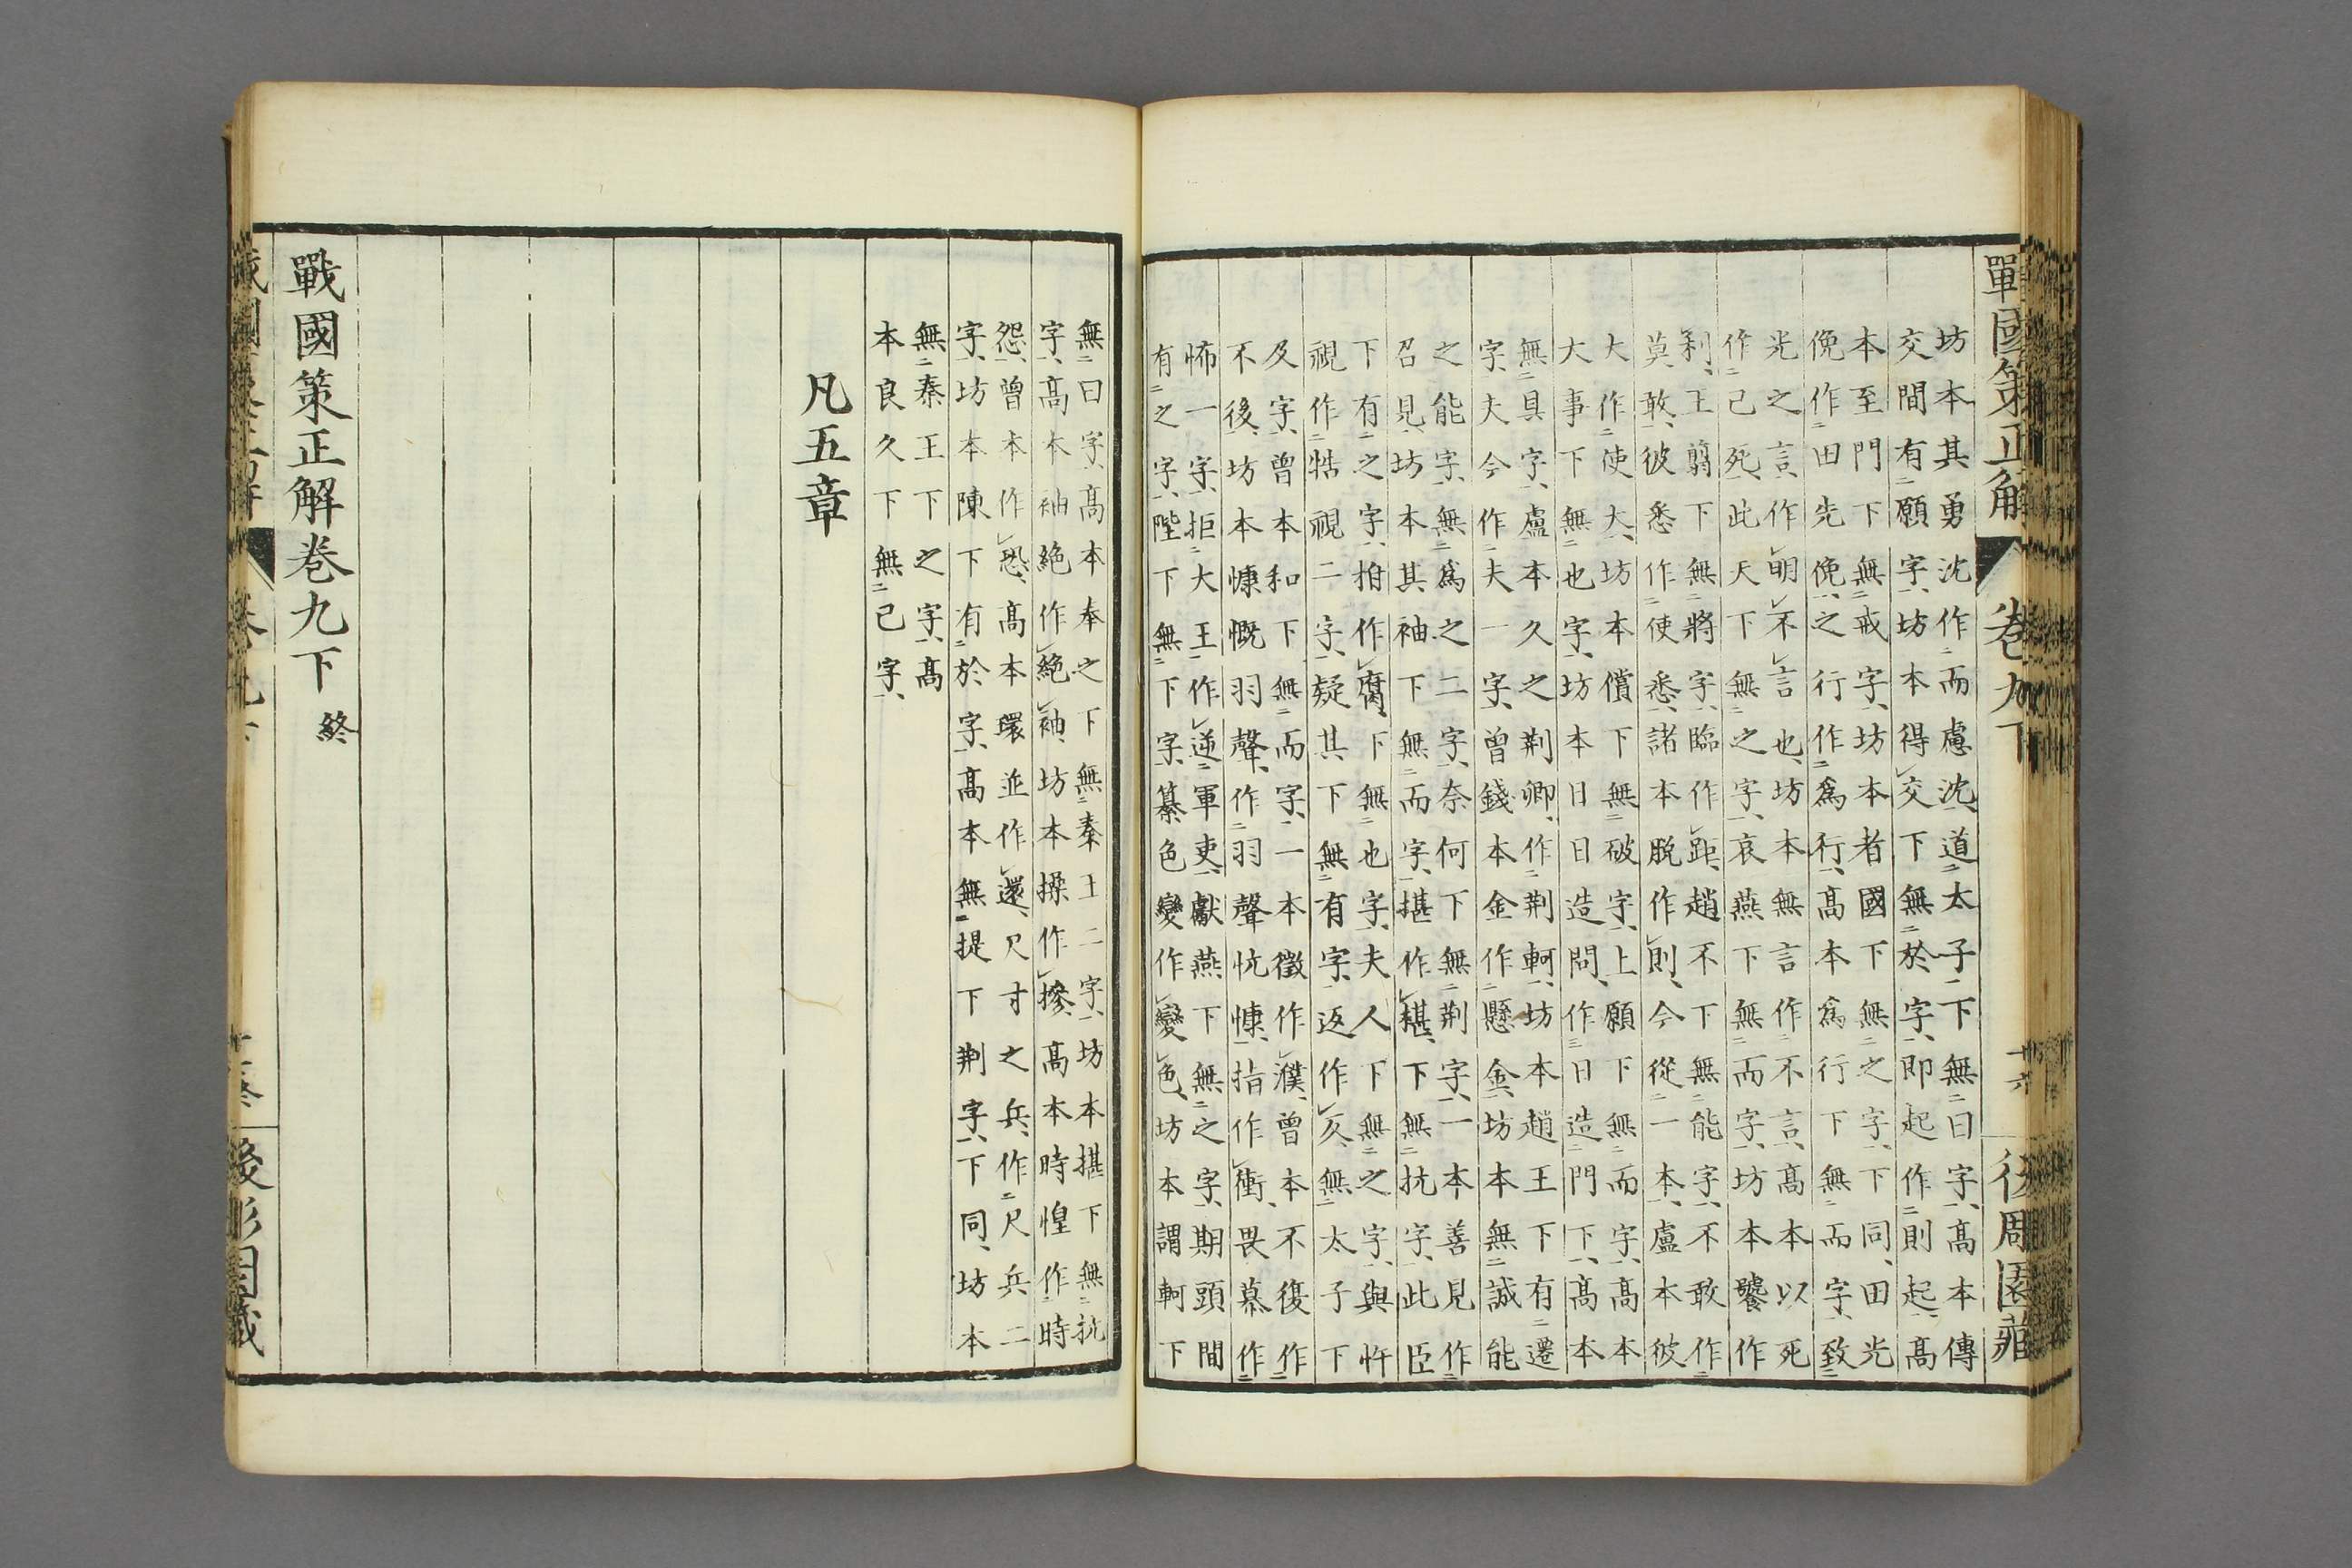 戰國策正解
卷九下
坊本其勇沈作而慮沈道太子下無曰字高本傳
交間有願字坊本得交下無於字即起作則起高
本至門下無戒字坊本者國下無之字下同田光
俛作田先俛之行作爲行高本爲行下無而字致
光之言作明不言也坊本無言作不言高本以死
作己死此天下無之字哀燕下無而字坊本饕作
利王翦下無將字臨作距趙不下無能字不敢作
莫敢彼悉作使悉諸本脫作則今從一本盧本彼
大作使大坊本償下無破字上願下無而字高本
大事下無也字坊本日日造問作日造門下高本
無具字盧本久之荆卿作荆軻坊本趙王下有遷
字夫今作夫一字曾錢本金作懸金坊本無誠能
之能字無爲之二字奈何下無荆字一本善見作
召見坊本其袖下無而字揕作椹下無抗字此臣
下有之字拊作腐下無也字夫人下無之字與忤
視作牾視二字疑其下無有字返作反無太子下
及字曾本和下無而字一本徵作濮曾本不復作
不後坊本慷慨羽聲作羽聲忼慷指作衝畏慕作
怖一字拒大王作逆軍吏獻燕下無之字期頭間
有之字陛下無下字纂色變作變色坊本謂軻下
無曰字高本奉之下無秦王二字坊本揕下無抗
字高本袖絕作絕袖坊本操作摻高本時惶作時
怨曾本作恐高本環並作還尺寸之兵作尺兵二
字坊本陳下有於字高本無提下荆字下同坊本
無秦王下之字高
本良久下無已字
凡五章
戰國策正解卷九下 終